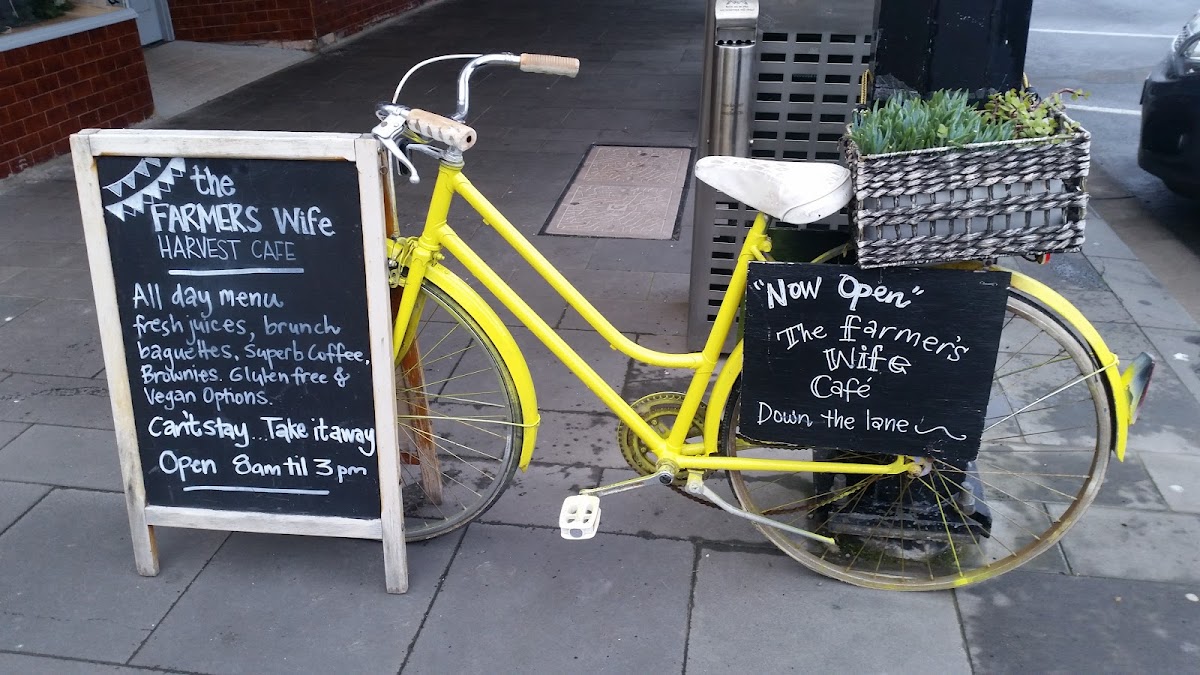 the
FARMERS Wife
HARVEST CAFE
All day menu
fresh juices, brunch
baguettes, Superb Coffee,
Brownies. Gluten free &
Vegan Options.
Can't stay... Take it away
Open 8am til 3pm
"Now Open"
The farmer's
Wife
Café
Down the lane